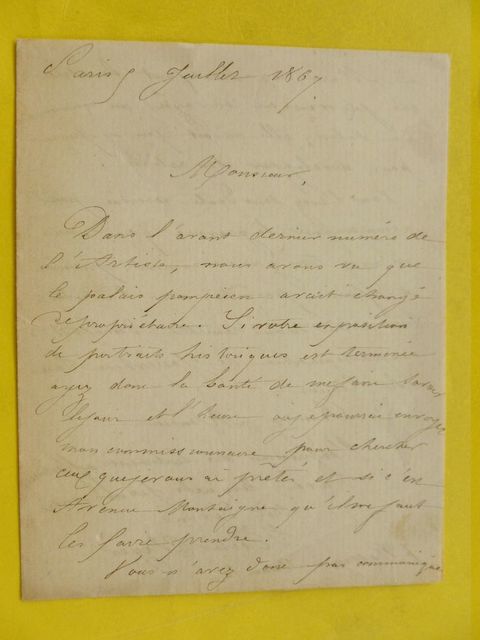 Paris 9 Juillet 1867
Monsieur,
Dans l'avant dernier numéro de
l'Artiste, nous avons vu que
le palais pompéien avait changé
de propriétaire. Si votre exposition
de portraits historiques est terminée
ayez donc la bonté de me faire savoir
le jour et l'heure où je pourrai envoyer
mon commissionnaire pour chercher
ceux que je vous ai prêtés et si c'est
Avenue Montaigne qu'il me faut
les faire prendre.
Vous n'avez donc pas communiqué